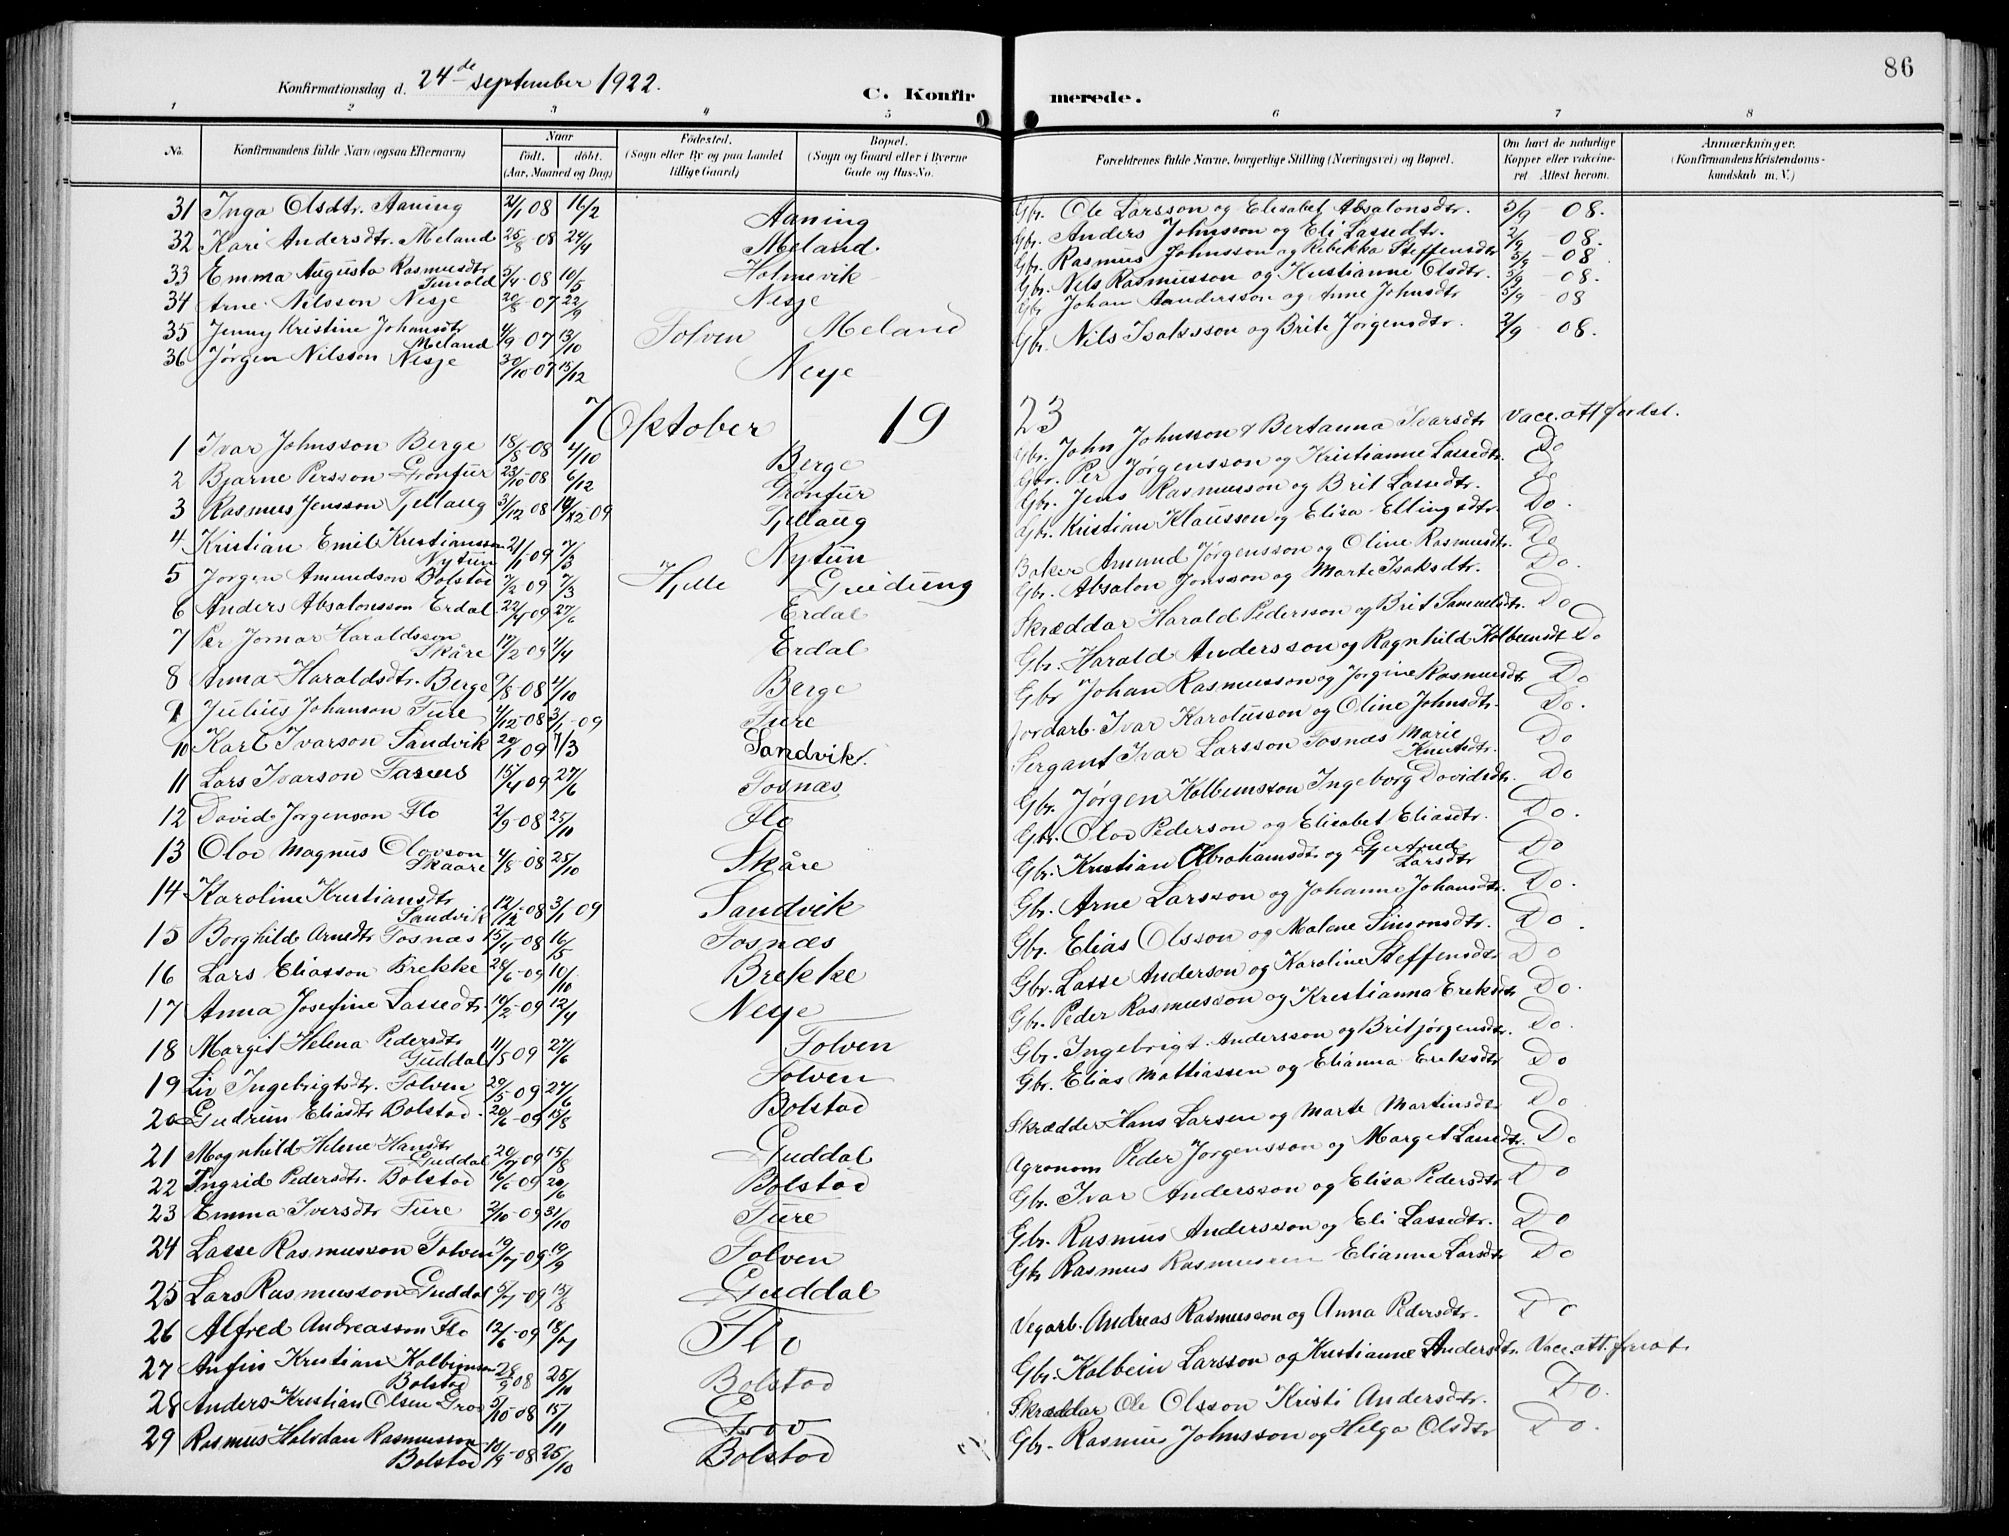 86
Konfirmationsdag d. 24de september 1922.
C. Konfirmerede.
1 2 3 4 5 6 7 8
No.
Konfirmandens fulde Navn (ogsaa Efternavn)
Naar
født. døbt.
(Aar, Maaned og Dag)
Fødested.
(Sogn eller By og paa Landet
tillige Gaard)
Bopæl.
(Sogn og Gaard eller i Byerne
Gade og Hus-No.
Forældrenes fulde Navne, borgerlige Stilling (Næringsvei) og Bopæl.
Om havt de naturlige
Kopper eller vakcine-
ret Attest herom.
Anmærkninger.
(Konfirmandens Kristendoms-
kundskab m. V.)
31 Inga Olsdtr. Aaning 2/1 08 16/2 Aaning Gbr. Ole Larsson og Elisabet Absalonsdtr. 5/9 - 08.
32 Kari Andersdtr. Meland 25/8 08 24/9 Meland. Gbr. Anders Johnsson og Eli Lassedtr. 2/9 - 08.
33 Emma Augusta Rasmusdtr 5/4 08 10/5 Holmevik Gbr. Rasmus Johnsson og Rebekka Steffensdtr 5/9 - 08
34 Arne Nilsson Nesje 20/8 07 22/9 Nesje Gbr. Nils Rasmusson og Kristianne Olsdtr. 5/9 - 08.
35 Jenny Kristine Johansdtr
Meland 4/9 07 13/10 Tolven Meland Gbr Johan Andersson og Anne Johnsdtr 5/9 - 08
36 Jørgen Nilsson Nesje 30/10 07 15/12 Nesje Gbr. Nils Isaksson og Brite Jørgensdtr. 2/9 - 08.
7 Oktober 1923
1 Ivar Johnsson Berge 18/8 08 4/10 Berge Gbr. John Johnsson & Bertanna Ivarsdtr Vacc. att forest.
2 Bjarne Persson Grønfur 23/10 08 6/12 Grønfur Gbr. Per Jørgensson og Kristianne Lassedtr. Do
3 Rasmus Jensson Tjellaug 31/12 08 09 Tjellaug Gbr. Jens Rasmusson og Brit Lassedtr. Do
4 Kristian Emil Kristiansson
Nytun 21/1 09 7/3 Nytun Gbr. Kristian Klausson og Elisa Ellingsdtr. Do.
5 Jørgen Amundson Bolstad 7/2 09 7/3 Hjelle Baker Amund Jørgensson og Oline Rasmusdtr. Do
6 Anders Absalonsson Erdal 22/4 09 27/6 Erdal Gbr. Absalon Jonsson og Marte Isaksdtr. Do.
7 Per Jomar Haraldsson
Skåre 12/2 09 4/4 Erdal Skræddar Harald Pedersson og Brit Samuelsdtr. Do
8 Anna Haraldsdtr. Berge 9/8 08 4/10 Berge Gbr. Harald Andersson og Ragnhild Kolbeinsdt Do
9 Julius Johanson Ture 4/12 08 3/1 09 Ture Gbr Johan Rasmusson og Jørgine Rasmusdtr Do
10 Karl Ivarson Sandvik 20/1 09 7/3 Sandvik. Jordarb. Ivar Karolusson og Oline Johnsdtr. Do.
11 Lars Ivarson 15/4 09 27/6 Tosnæs Sergant Ivar Larsson Tosnæs Marie
Knutsdtr. Do
12 David Jørgenson Flo 2/9 08 25/10 Flo Gbr. Jørgen Kolbeinsson Ingeborg Davidsdtr. Do
13 Olav Magnus Olavson
Skaare 4/8 08 25/10 Skåre Gbr. Olav Pederson og Elisabet Eliasdtr. Do.
14 Karoline Kristiansdtr
Sandvik 12/12 08 3/1 09 Sandvik Gbr. Kristian Abrahamsdtr og Gjertrud
Larsdtr Do
15 Borghild Arnedtr Tosnæs 15/4 08 16/5 Tosnæs Gbr. Arne Larsson og Johanne Johansdtr. Do.
16 Lars Eliasson Brekke 28/6 09 10/10 Brekke Gbr. Elias Olsson og Malene Simonsdtr. Do
17 Anna Josefine Lassedtr. 10/2 09 12/4 Nesje Gbr. Lasse Anderson og Karoline Steffensdtr Do
18 Margit Helena Pedersdtr
Guddal 11/5 09 27/6 Tolven Gbr. Peder Rasmusson og Kristianna Eriksdtr Do.
19 Liv Ingebrigtsdtr. Tolven 20/5 09 27/6 Tolven Gbr. Ingebrigt Andersson og Brit Jørgensdtr. Do.
20 Gudrun Eliasdtr Bolstad. 20/6 09 15/8 Bolstad Gbr. Elias Mattiassen og Elianna Eriksdtr Do
21 Magnhild Helene Hansdtr
Guddal 20/7 09 15/8 Guddal Skrædder Hans Larsen og Marte Martinsdtr Do
22 Ingrid Pedersdtr. Bolstad 16/6 09 20/6 Bolstad Agronom Peder Jørgensson og Marget Larsdtr. Do
23 Emma Iversdtr Ture 2/10 09 31/10 Ture Gbr. Ivar Andersson og Elisa Pedersdtr Do
24 Lasse Rasmusson Tolven 19/7 09 19/9 Tolven Gbr. Rasmus Andersson og Eli Lassedtr. Do
25 Lars Rasmusson Guddal 5/7 09 15/8 Guddal Gbr Rasmus Rasmussen Elianne Larsdtr Do
26 Alfred Andreasson Flo 12/6 09 18/7 Flo Vegarb. Andreas Rasmusson og Anna Pedersdtr. Do
27 Anfin Kristian Kolbeinson
Bolstad 28/9 08 25/10 Bolstad Gbr. Kolbein Larsson og Kristianne Andersdtr. Vacc. att. forest.
28 Anders Kristian Olsen Grov 5/10 08 15/11 Grov Skræddar Ole Olsson Kristi Andersdtr. Do.
29 Rasmus Halvdan Rasmusson
Bolstad 10/9 08 25/10 Bolstad Gbr. Rasmus Johnsson og Helga Olsdtr Do.